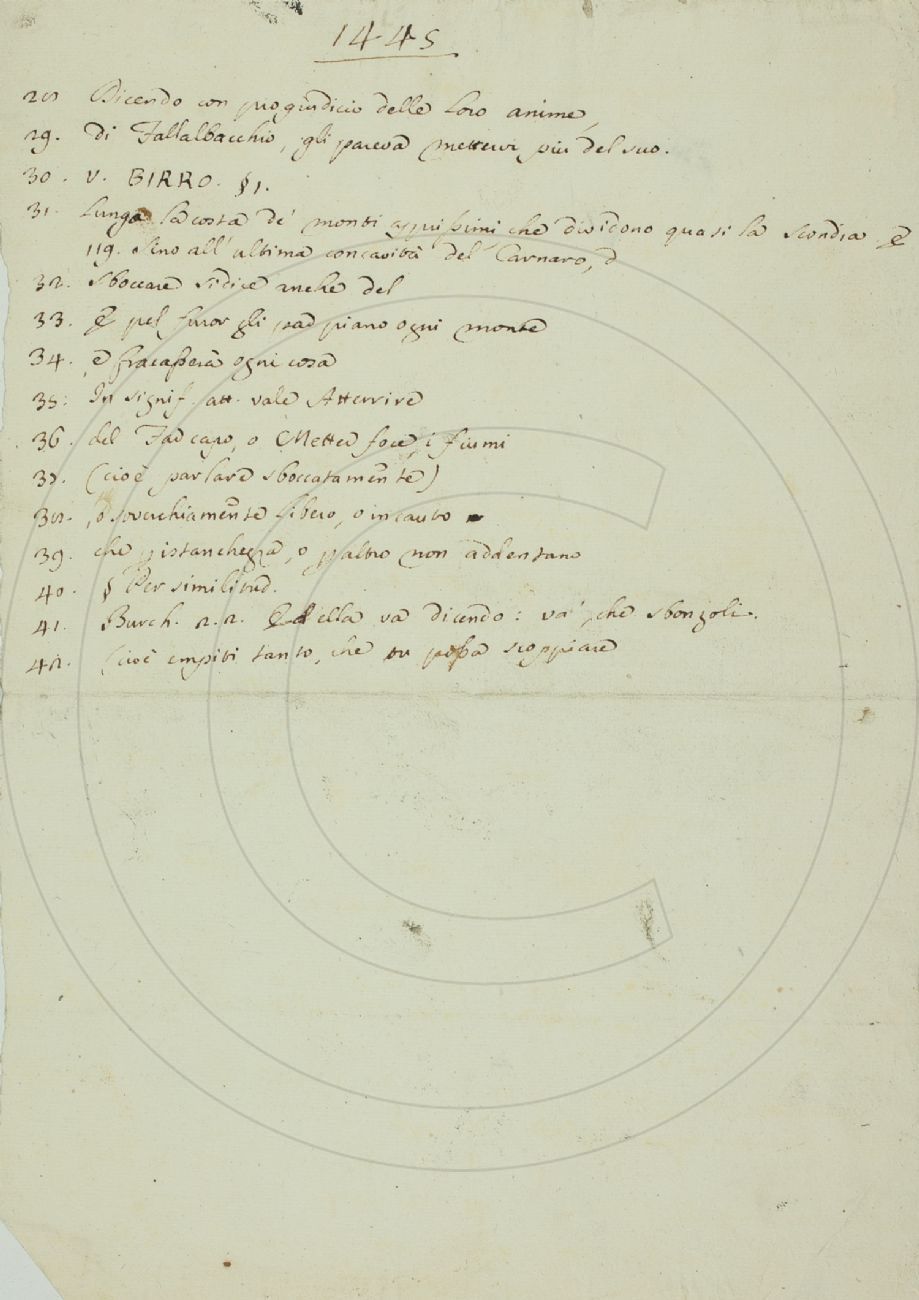 1445
28 Dicendo con progiudicio delle loro anime,
29. di Fallalbacchio, gli pareva mettervi più del suo.
30. V. BIRRO. §1.
31. Lungo la costa de' monti che dividono quasi la Scondia E
119. Sino all' ultima concavità del Carnaro, d
32. Sboccare si dice anche del
33. E pel furor gli par piano ogni monte
34. e fracasserà ogni cosa
35: In signif. att. vale Atterrire
36. del Far capo, o Metter foce, i fiumi
37. (cioè parlare sboccatamente)
38. o soverchiamente libero, o incauto
39. che p istanchezza, o p altro non addentano
40. § Per similitud.
41. Burch. 2. 2. Ed ella va dicendo: va', che sbonzoli.
42. (cioè empiti tanto, che tu possa scoppiare